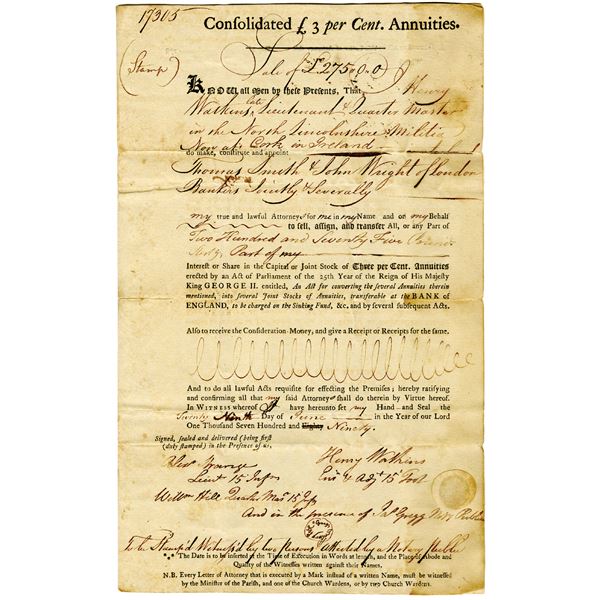 17305
Consolidated £ 3 per Cent. Annuities.
(Stamp)
Sale of £275.0.0
KNOW all Men by these Presents, That I Henry
Watkins, late Lieutenant & Quarter Master
in the North Lincolnshire Militia
Now at Cork in Ireland
do make, constitute and appoint
Thomas Smith & John Wright of London
Bankers Jointly & Severally
my true and lawful Attorneys for me in my Name and on my Behalf
to sell, assign, and transfer All, or any Part of
Two Hundred and Seventy Five Pounds
Only, Part of my
Interest or Share in the Capital or Joint Stock of Three per Cent. Annuities
erected by an Act of Parliament of the 25th Year of the Reign of His Majesty
King GEORGE II. entitled, An Act for converting the several Annuities therein
mentioned, into several Joint Stocks of Annuities, transferable at the BANK of
ENGLAND, to be charged on the Sinking Fund, &c. and by several subsequent Acts.
Also to receive the Consideration-Money, and give a Receipt or Receipts for the same.
And to do all lawful Acts requisite for effecting the Premises; hereby ratifying
and confirming all that my said Attorneys shall do therein by Virtue hereof.
In WITNESS whereof I have hereunto set my Hand and Seal the
Twenty Ninth Day of June in the Year of our Lord
One Thousand Seven Hundred and Eighty Ninety.
Signed, sealed and delivered (being first
(duly stamped) in the Presence of us,
Henry Watkins
Lieut 15 Ens & Adjt 15 Foot
Willm Hill Quarter Mas 15
And in the presence of Gregg Noty Publick
To be Stamp'd Witness'd by two Persons attested by a Notary Publick
*** The Date is to be inserted at the Time of Execution in Words at length, and the Place of Abode and
Quality of the Witnesses written against their Names.
N.B. Every Letter of Attorney that is executed by a Mark instead of a written Name, must be witnessed
by the Minister of the Parish, and one of the Church Wardens, or by two Church Wardens.